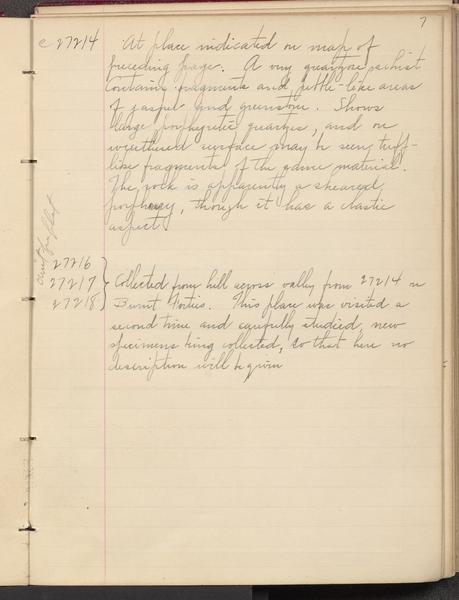 7
c 27214 At place indicated on map of
preceding page. A very quartzose schist.
Contains fragments and pebble-like areas
of jasper and greenstone. Shows
large porphyritic quartzes, and on
weathered surface may be seen tuff-
like fragments of the same material.
The rock is apparently a sheared
porphyry, though it has a clastic
aspect.
27216
27217 } Collected from hill across valley from 27214 on
27218 Burnt Forties. This place was visited a
second time and carefully studied, new
specimens being collected, so that here no
description will be given